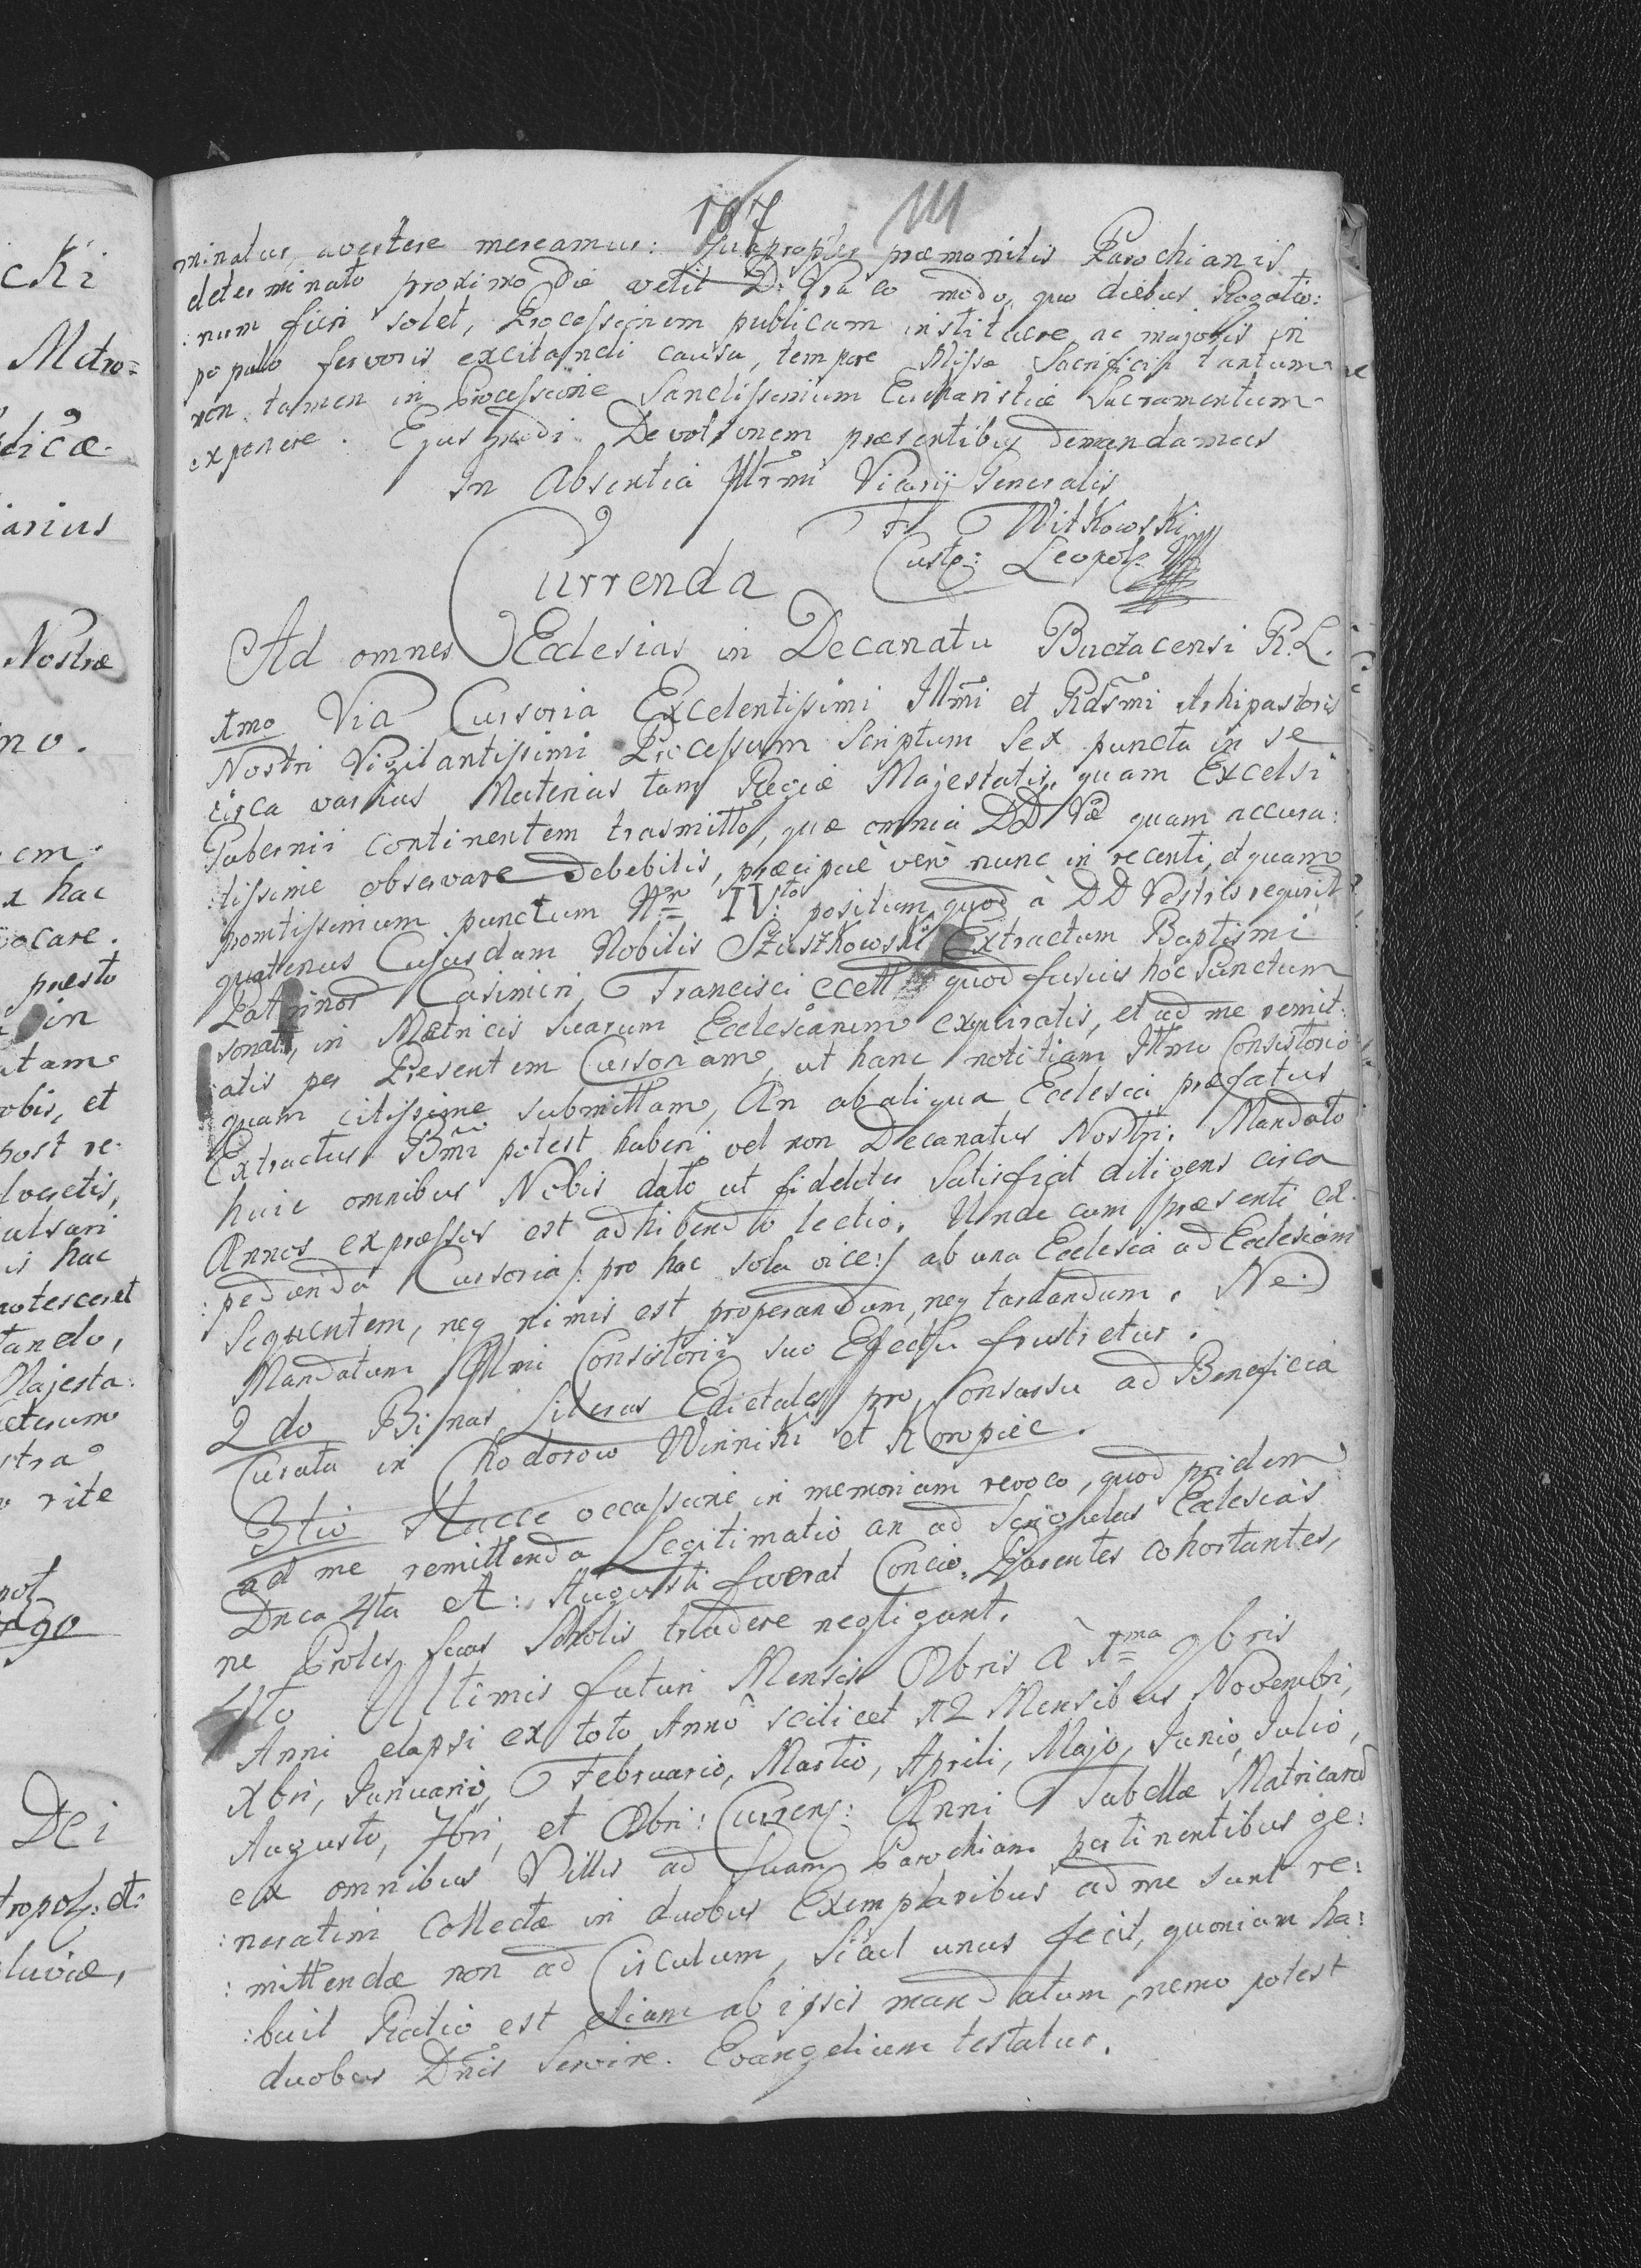 cki
Metro=
dicæ.
iarius
Nostræ
no.
em.
x hac
vocare.
præsto
in
utam
obis, et
post re.
lveretis,
ulsari
is hac
notesceret
tando,
Majesta:
eterum
stra
rite
90
Dei
tropol: et
luviæ,
107 111
minatur, avertere mereamur: Quapropter præmonitis Parochianis
determinato proximo die velit D: Vra eo modo, quo diebus Rogatio:
:num fieri solet, Processionem publicam instituere ac majoris in
populo fervoris excitandi causa, tempore Missæ Sacrificii tantum
non tamen in Processione Sanctissimum Eucharistiæ Sacramentum
exponere. Ejusmodi Devotionem præsentibus demandamus
In Absentia Illrmi Vicarij Generalis
F. Witkowski
Custo: Leopol:
Currenda
Ad omnes Ecclesias in Decanatu Buczacensi R. L.
1mo Via Cursoria Excelentissimi Illmi et Rdsmi Archipastoris
Nostri Vigilantissimi Processum Scriptum Sex puncta in se
circa varias Materias tam Regiæ Majestatis, quam Excelsi
Gubernii continentem trasmitto, quæ omnia DD Væ quam accura:
:tissime observare debebitis, præcipuè verò nunc in recenti, et quam
promtissimum punctum Nro IVto: positum, quod à DD Vestris requirit
quatenus Cujusdam Nobilis Szuszkowski Extractum Baptismi
Casimiri, Francisci ecett quod fusius hoc Punctum
sonat, in Metricis suarum Ecclesiarum exquiratis, et ad me remit:
atis per Presentem Cursoriam, ut hanc notitiam Illmo Consistorio
quam citissime submittam, An ab aliqua Ecclesia præfatus
Extractus Bmi potest haberi, vel non Decanatus Nostri. Mandato
huic omnibus Nobis dato ut fideliter Satisfiat diligens circa
Annos expressos est adhibenda lectio. Unde cum præsenti ex
:pedienda Cursoria /: pro hac sola vice :/ ab una Ecclesia ad Ecclesiam
Sequentem, neq nimis est properandum, neq tardandum. Ne
Mandatum Illmi Consistorii suo Effectu frustretur.
2do Binas Literas Edictales pro Consursu ad Beneficia
Curata in Chodorow Winniki et Kropiec.
3tio Hacce occassione in memoriam revoco, quod pridem
ad me remittenda Legitimatio an ad Singulas Ecclesias
Dnca 4ta et: Augusti fuerat Concio, Parentes cohortantes,
ne Proles suas Scholis tradere negligant.
4to Ultimis futuri Mensis 8bris à 1ma 9bris
Anni elapsi ex toto Anno scilicet 12 Mensibus Novembri,
Xbri, Januario, Februario, Martio, Aprili, Majo, Junio, Julio,
Augusto, 7bri, et 8bri: Curren: Anni Tabellæ Matricarum
ex omnibus Villis ad suam Parochiam pertinentibus ge:
:neratim Collectæ in duobus Exemplaribus ad me sunt re:
:mittendæ non ad Circulum, sicut unus fecit, quoniam ha:
:buit Ratio est etiam ab ipsis mandatum, nemo potest
duobus Dnis Servire. Evangelium testatur.